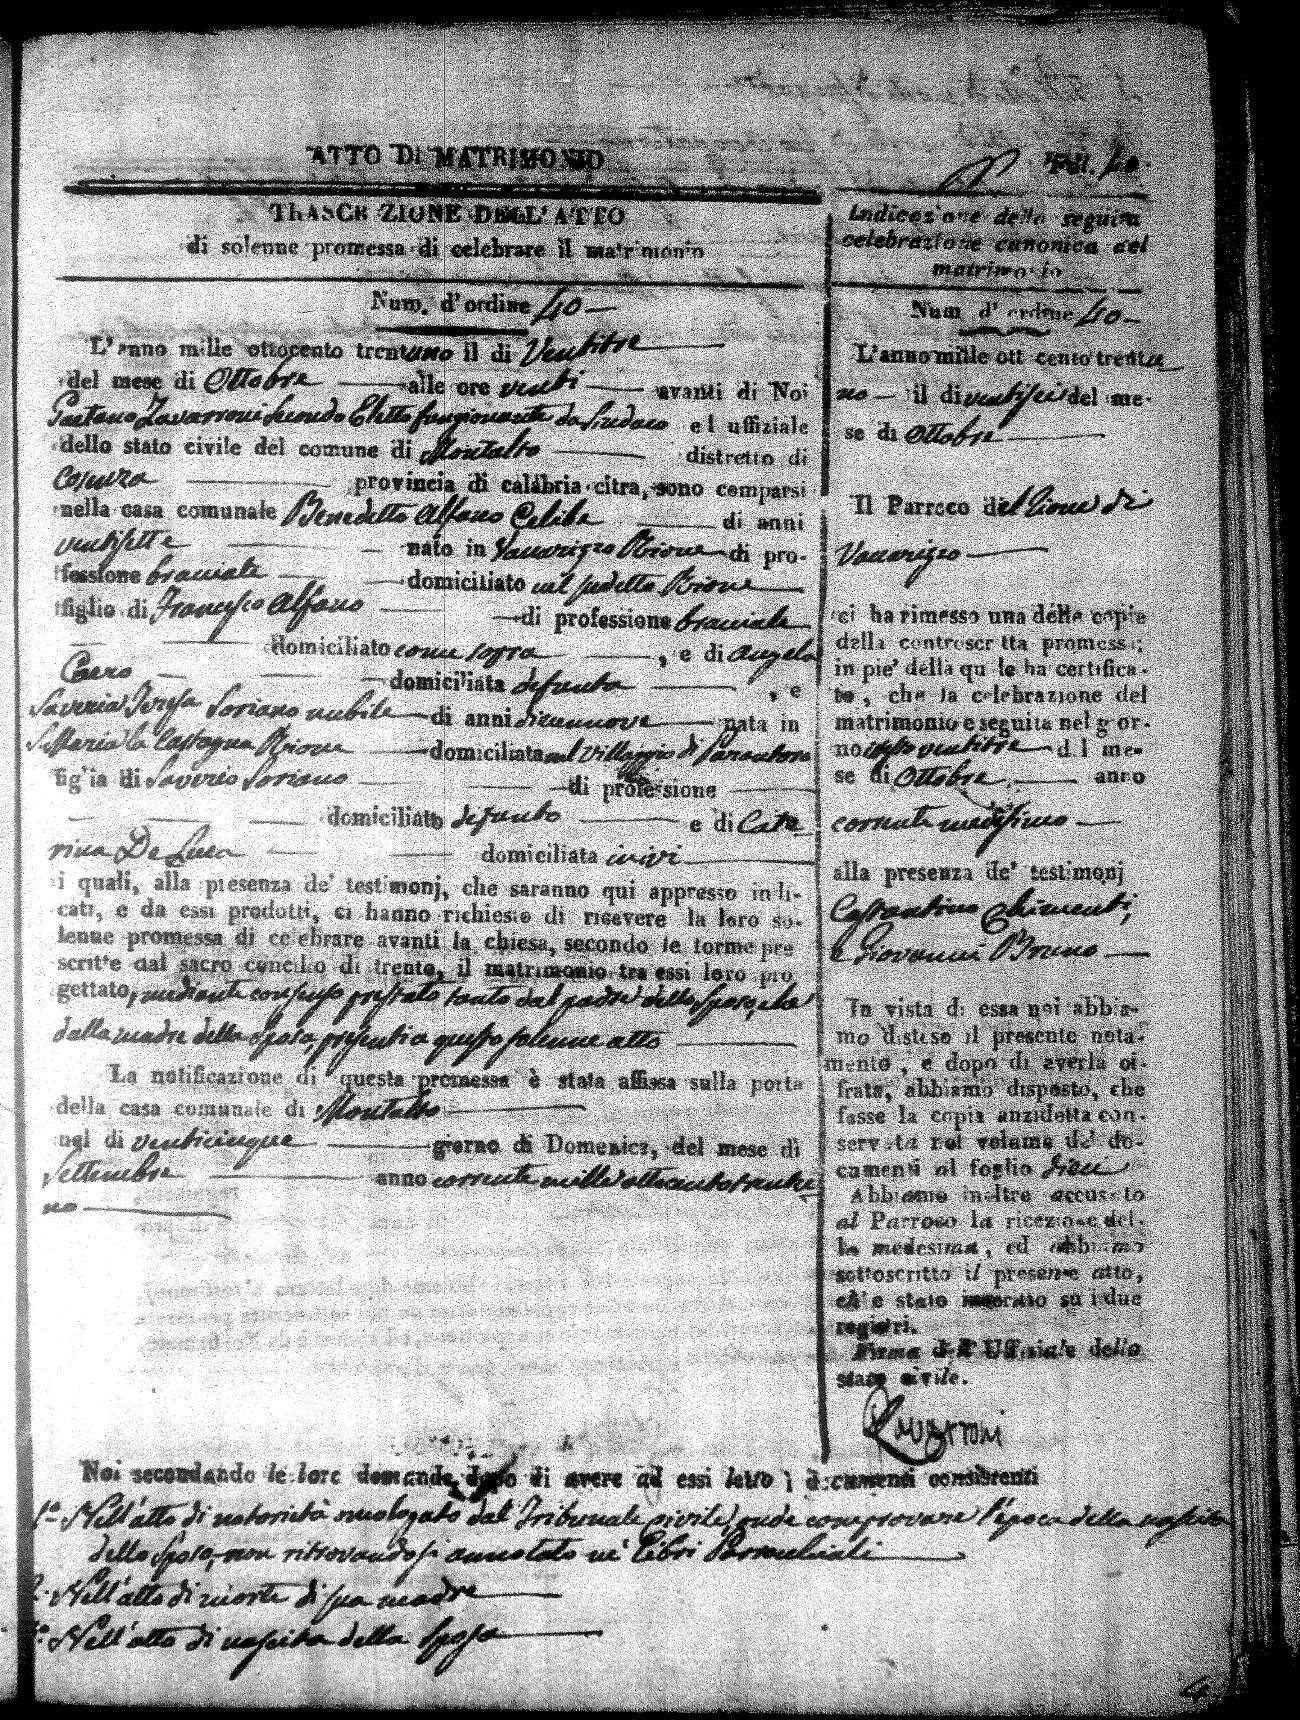 ATTO DI MATRIMONIO
Fol. 40.
TRASCRIZIONE DELL'ATTO
di solenne promessa di celebrare il matrimonio
Num. d'ordine 40
L'anno mille ottocento trentuno il di Ventitre
del mese di Ottobre alle ore venti avanti di Noi
Gaetano Zavarroni Secondo Eletto funzionante da Sindaco ed uffiziale
dello stato civile del comune di Montalto distretto di
Cosenza provincia di calabria citra, sono comparsi
nella casa comunale Benedetto Alfano Celibe di anni
ventisette nato in Vaccarizzo Rione di pro-
fessione bracciale domiciliato nel sudetto Rione
figlio di Francesco Alfano di professione bracciale
domiciliato come sopra , e di Angela
Caero domiciliata defunta , e
Saveria Teresa Soriano nubile di anni diecinnove nata in
Santa Maria la Castagna Rione domiciliata nel Villaggio di Parantoro
figlia di Saverio Soriano di professione
domiciliato defunto e di Cate
rina De Luca domiciliata ivi
i quali, alla presenza de' testimonj, che saranno qui appresso indi-
cati, e da essi prodotti, ci hanno richiesto di ricevere la loro so-
lenne promessa di celebrare avanti la chiesa, secondo le forme pre
scritte dal sacro concilio di trento, il matrimonio tra essi loro pro
gettato, mediante consenso prestato tanto dal padre dello Sposo, che
dalla madre della Sposa, presenti a questo solenne atto
La notificazione di questa promessa è stata affissa sulla porta
della casa comunale di Montalto
nel di venticinque giorno di Domenica, del mese di
Settembre anno corrente mille ottocento trentu
no
Indicazione della seguita
celebrazione canonica del
matrimonio
Num d'ordine 40
L'anno mille ottocento trentu
no il di ventisei del me-
se di Ottobre
Il Parroco del Rione di
Vaccarizzo
ci ha rimesso una delle copie
della controscritta promessa;
in pie' della quale ha certifica-
to, che la celebrazione del
matrimonio e seguita nel gior-
no istesso ventitre del me-
se di Ottobre anno
corrente medesimo
alla presenza de' testimonj
Costantino Chimenti,
e Giovanni Bruno
In vista di essa noi abbia-
mo disteso il presente nota-
mento, e dopo di averla ci-
frata, abbiamo disposto, che
fosse la copia anzidetta con-
servata nel volume de' do-
cumenti al foglio dieci
Abbiamo inoltre accusato
al Parroco la ricezione del-
la medesima, ed abbiamo
sottoscritto il presente atto,
ch'e stato inscritto su i due
registri.
Firma dell'Uffiziale dello
stato civile.
Zavarroni
Noi secondando le loro domande dopo di avere ad essi letto i documenti consistenti
1.o Nell'atto di notorietà omologato dal Tribunale civile, onde comprovare l'epoca della nascita
dello Sposo, non ritrovandosi annotato ne' Libri Parrocchiali
2.o Nell'atto di morte di sua madre
3.o Nell'atto di nascita della Sposa